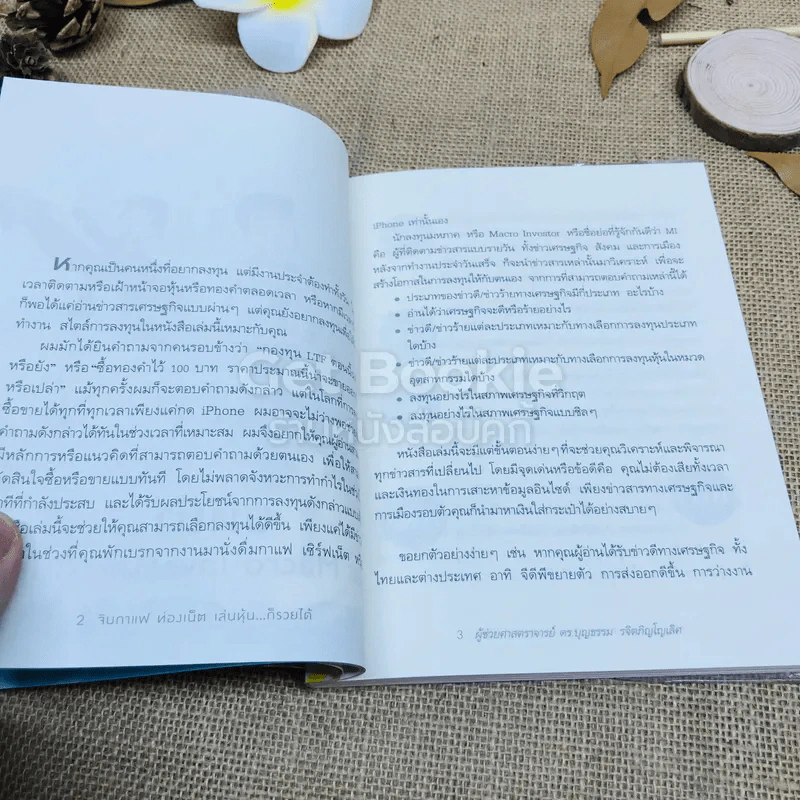 หากคุณเป็นคนหนึ่งที่อยากลงทุน แต่มีงานประจำต้องทำทั้งวัน
เวลาติดตามหรือเฝ้าหน้าจอหุ้นหรือทองคำตลอดเวลา หรือหาก
ก็พอได้แค่อ่านข่าวสารเศรษฐกิจแบบผ่านๆ แต่คุณยังอยากลงทุน
ทำงาน สไตล์การลงทุนในหนังสือเล่มนี้เหมาะกับคุณ
ผมมักได้ยินคำถามจากคนรอบข้างว่า "กองทุน LTF ตอนนี้
หรือยัง" หรือ "ซื้อทองคำไว้ 100 บาท ราคาประมาณนี้น่าจะขาย
หรือเปล่า" แม้ทุกครั้งผมก็จะตอบคำถามดังกล่าว แต่ในโลกที่การ
ซื้อขายได้ทุกที่ทุกเวลาเพียงแค่กด iPhone ผมอาจจะไม่ว่าง
คำถามดังกล่าวได้ทันในช่วงเวลาที่เหมาะสม ผมจึงอยากให้คุณผู้อ่าน
มีหลักการหรือแนวคิดที่สามารถตอบคำถามด้วยตนเอง เพื่อให้
ตัดสินใจซื้อหรือขายแบบทันที โดยไม่พลาดจังหวะการทำกำไร
ที่กำลังประสบ และได้รับผลประโยชน์จากการลงทุนดังกล่าว
เล่มนี้จะช่วยให้คุณสามารถเลือกลงทุนได้ดีขึ้น เพียงแค่ได้
ในช่วงที่คุณพักเบรกจากงานมานั่งดื่มกาแฟ เซิร์ฟเน็ต
2 จิบกาแฟ ท่องเน็ต เล่นหุ้น...ก็รวยได้
iPhone เท่านั้นเอง
นักลงทุนมหภาค หรือ Macro Investor หรือชื่อย่อที่รู้จักกันดีว่า MI
คือ ผู้ที่ติดตามข่าวสารแบบรายวัน ทั้งข่าวเศรษฐกิจ สังคม และการเมือง
หลังจากทำงานประจำวันเสร็จ ก็จะนำข่าวสารเหล่านั้นมาวิเคราะห์ เพื่อจะ
สร้างโอกาสในการลงทุนให้กับตนเอง จากการที่สามารถตอบคำถามเหล่านี้ได้
• ประเภทของข่าวดี/ข่าวร้ายทางเศรษฐกิจมีกี่ประเภท อะไรบ้าง
• อ่านได้ว่าเศรษฐกิจจะดีหรือร้ายอย่างไร
• ข่าวดี/ข่าวร้ายแต่ละประเภทเหมาะกับทางเลือกการลงทุนประเภท
ใดบ้าง
• ข่าวดี/ข่าวร้ายแต่ละประเภทเหมาะกับทางเลือกการลงทุนหุ้นในหมวด
อุตสาหกรรมใดบ้าง
• ลงทุนอย่างไรในสภาพเศรษฐกิจที่วิกฤต
• ลงทุนอย่างไรในสภาพเศรษฐกิจแบบชิลๆ
หนังสือเล่มนี้จะมีแต่ขั้นตอนง่ายๆ ที่จะช่วยคุณวิเคราะห์และพิจารณา
ทุกข่าวสารที่เปลี่ยนไป โดยมีจุดเด่นหรือข้อดีคือ คุณไม่ต้องเสียทั้งเวลา
และเงินทองในการเสาะหาข้อมูลอินไซด์ เพียงข่าวสารทางเศรษฐกิจและ
การเมืองรอบตัวคุณก็นำมาหาเงินใส่กระเป๋าได้อย่างสบายๆ
ขอยกตัวอย่างง่ายๆ เช่น หากคุณผู้อ่านได้รับข่าวดีทางเศรษฐกิจ ทั้ง
ไทยและต่างประเทศ อาทิ จีดีพีขยายตัว การส่งออกดีขึ้น การว่างงาน
3 ผู้ช่วยศาสตราจารย์ ดร.บุญธรรม รจิตภิญโญเลิศ
Get Bookie
ร้านหนังสือบุ๊คกี้